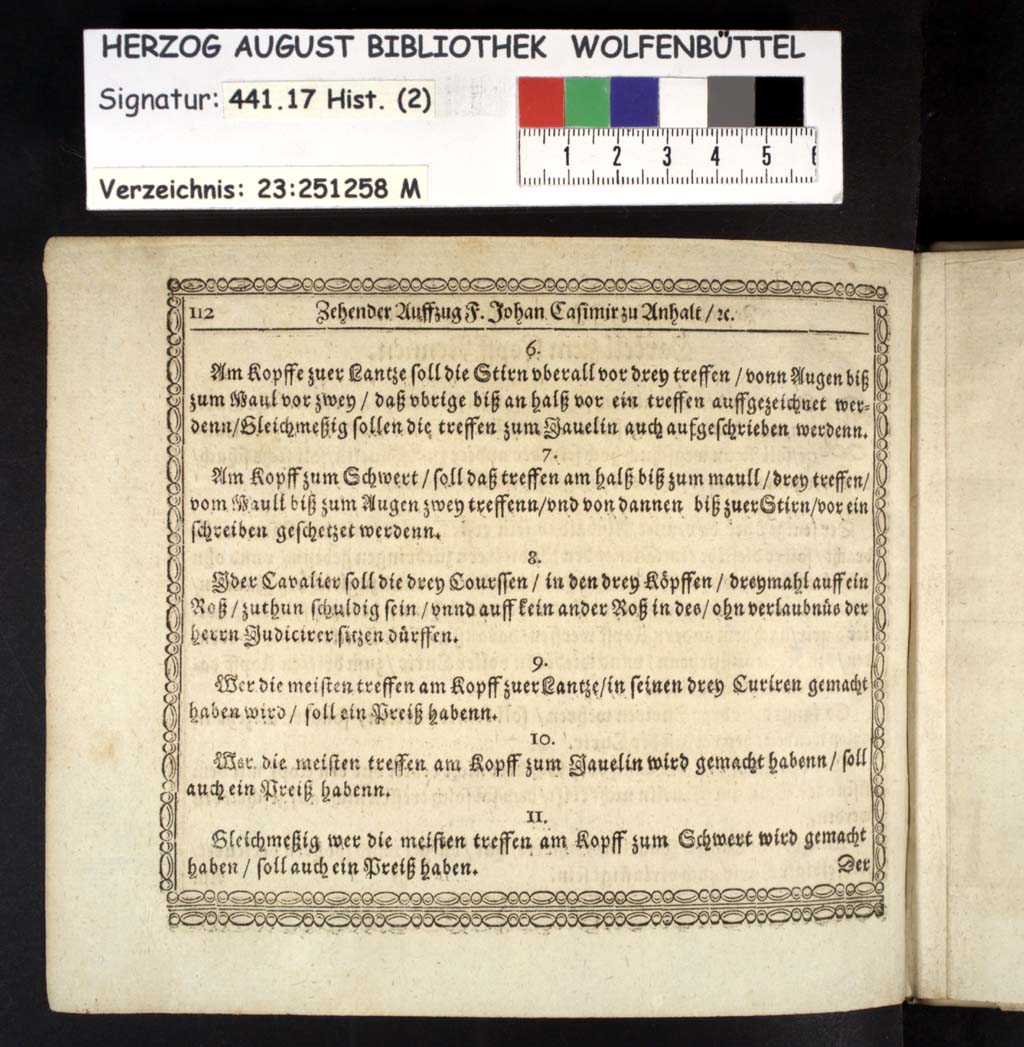 HERZOG AUGUST BIBLIOTHEK WOLFENBÜTTEL
Signatur: 441.17 Hist. (2)
1 2 3 4 5 6
Verzeichnis: 23:251258 M
112 Zehender Auffzug F. Johan Casimir zu Anhalt / ꝛc.
6.
Am Kopffe zuer Lantze soll die Stirn vberall vor drey treffen / vonn Augen biß
zum Maul vor zwey / daß vbrige biß an halß vor ein treffen auffgezeichnet wer-
denn/Gleichmeßig sollen die treffen zum Jauelin auch aufgeschrieben werdenn.
7.
Am Kopff zum Schwert / soll daß treffen am halß biß zum maull / drey treffen/
vom Maull biß zum Augen zwey treffenn/vnd von dannen biß zuer Stirn/vor ein
schreiben geschetzet werdenn.
8.
Jder Cavalier soll die drey Courssen / in den drey Köpffen / dreymahl auff ein
Roß / zuthun schuldig sein / vnnd auff kein ander Roß in des/ ohn verlaubnüs der
herrn Judicirer sitzen dürffen.
9.
Wer die meisten treffen am Kopff zuer Lantze/in seinen drey Curiren gemacht
haben wird / soll ein Preiß habenn.
10.
Wer die meisten treffen am Kopff zum Jauelin wird gemacht habenn/ soll
auch ein Preiß habenn.
11.
Gleichmeßig wer die meisten treffen am Kopff zum Schwert wird gemacht
haben / soll auch ein Preiß haben. Der